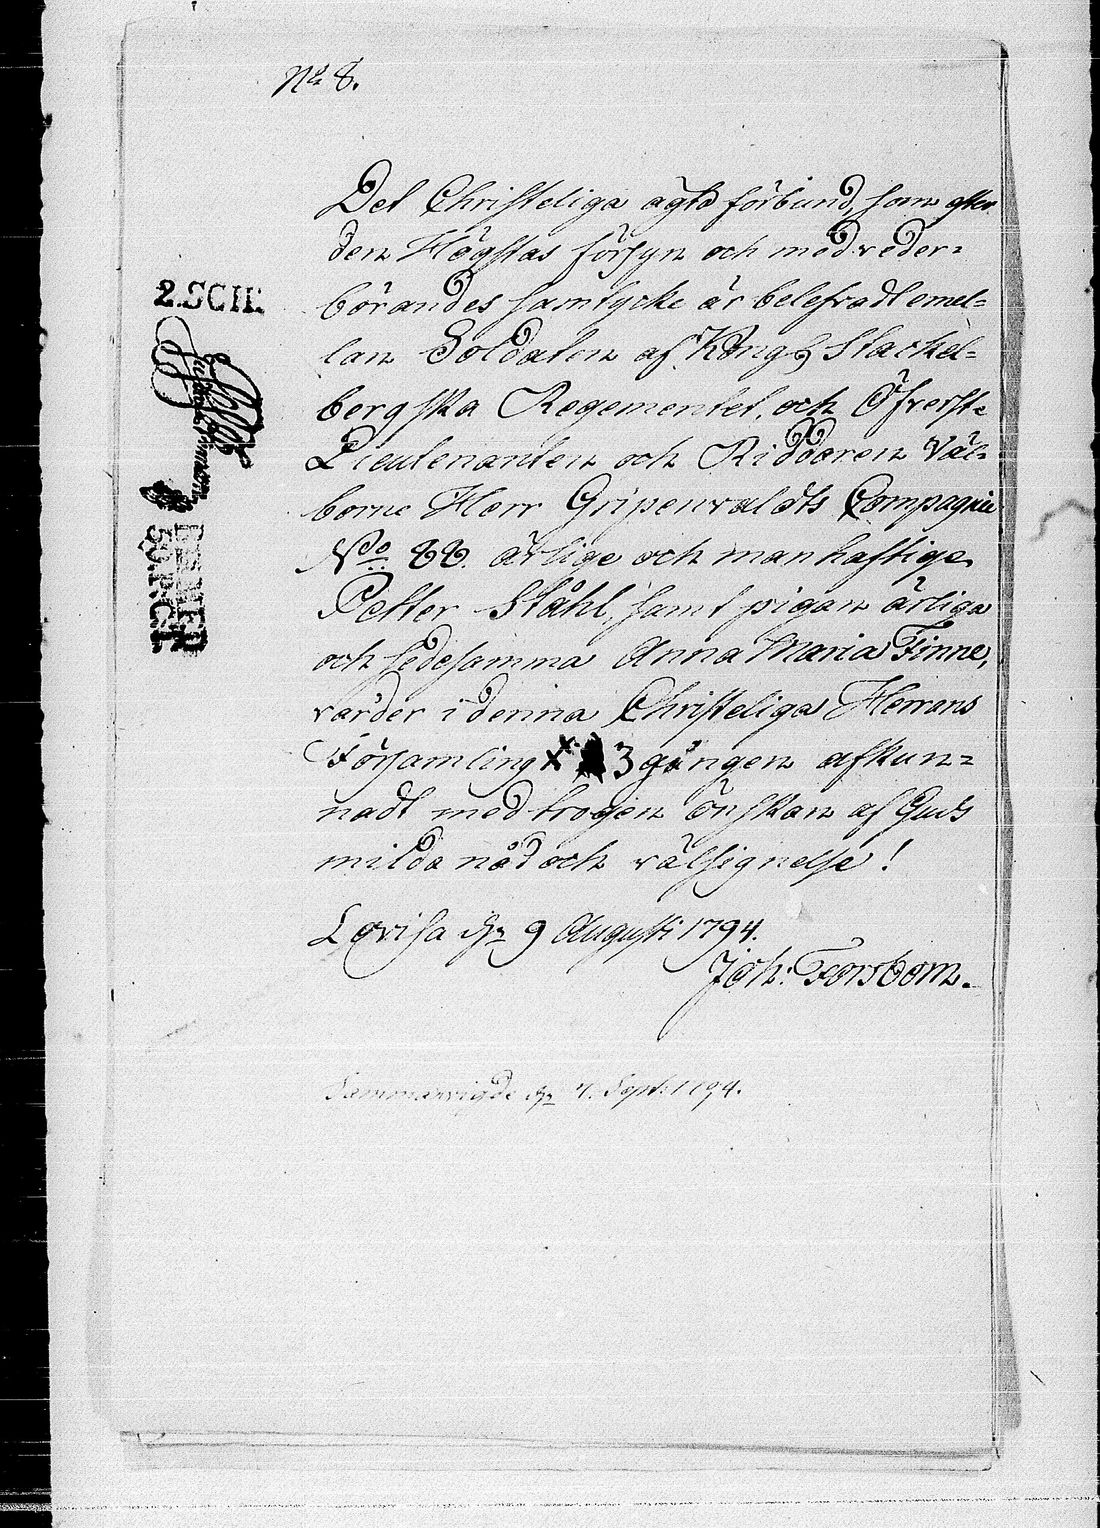 No 8.
Det Christeliga ägta förbund, som efter
den Högstas försyn och med veder=
börandes samtycke är belefvadt emel=
lan Soldaten af Kongl. Stackel=
bergska Regementet, och Öfverst=
Lieutenanten och Riddaren Väl=
borne Herr Gripenvaldts Compagnie
No 88. ärlige och manhaftige
Petter Ståhl, samt pigan ärliga
och sedesamma Anna Maria Finne,
varder i denna Christeliga Herrans
Församling X 3 gången afkun=
nadt med trogen önskan af Guds
milda nåd och välsignelse!
Lovisa den 9 Augusti 1794.
Joh: Forsbom.
Sammanvigde den 4. Sept: 1794.
2. SCH.